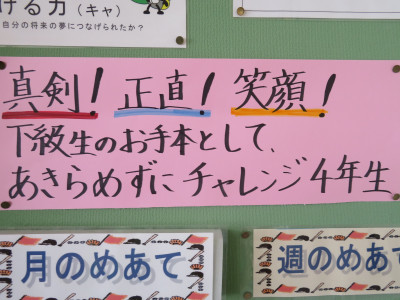 ける力（キャ）
自分の将来の夢につなげられたか？
真剣！正直！笑顔！
下級生のお手本として、
あきらめずにチャレンジ4年生
月のめあて
週のめあて